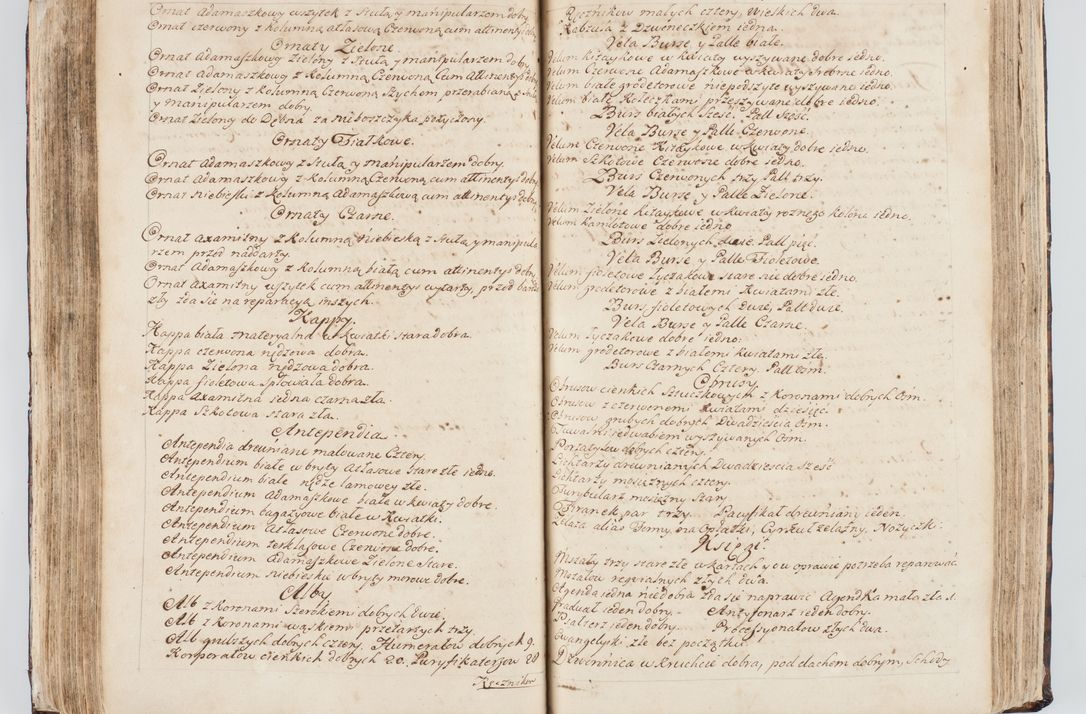 Ornat Adamaszkowy wszytek z Stułą y manipularzem dobry
Ornat czerwony z kolumną atłasową Czerwoną cum attinentys
Ornaty Zielone.
Ornat Adamaszkowy Zielony z Stułą y manipularzem dobry
Ornat Adamaszkowy z Kolumną Czerwoną Cum Attinentys
Ornat Zielony z Kolumną Czerwoną Sztychem przerabianą z
y manipularzem dobry.
Ornat Zielony do Dębna za nieboszczyka pożyczony.
Ornaty Fiałkowe.
Ornat Adamaszkowy z Stułą y manipularzem dobry
Ornat Adamaszkowy z Kolumną Czerwoną cum attinentys dobry
Ornat niebieski z Kolumną Adamaszkową cum attinentys dobry
Ornaty Czarne.
Ornat Axamitny z Kolumną Niebieską z Stułą y manipula
rzem przed naddarty.
Ornat Adamaszkowy z Kolumną białą cum attinentys dobry
Ornat Axamitny wszytek cum attinentys wytarty, przed bardzo
zły zda sie na reparacyą inszych.
Kappy.
Kappa biała materyalna w kwiatki stara dobra.
Kappa czerwona nędzowa dobra.
Kappa Zielona nędzowa dobra.
Kappa fioletowa spłowiała dobra.
Kappa Axamitna iedna czarna zła.
Kappa Szkotowa stara zła.
Antependia.
Antependia drewniane malowane Cztery.
Antependium białe w bryty Atłasowe stare złe iedno.
Antependium białe lamowey złe.
Antependium Adamaszkowe białe w kwiaty dobre.
Antependium bagazyowe białe w Kwiatki.
Antependium Atłasowe Czerwone dobre.
Antependium Czerwone dobre.
Antependium Adamaszkowe Zielone Stare.
Antependium niebieskie w bryty morowe dobre.
Alby
Alb z Koronami szerokiemi dobrych dwie.
Alb z Koronami wąskiemi przetartych trzy.
Alb grubszych dobrych cztery. Humerałow dobrych 9.
Korporałow cienkich dobrych 20. Puryfikaterzow 28
Ręcznikow
Ręcznikow małych cztery, Wielkich dwa.
Kabzula z Dzwoneczkiem iedna.
Vela Bursę y Palle białe.
Velum Kitaykowe w kwiaty wyszywane dobre iedno.
Velum Czerwone Adamaszkowe w kwiaty srebrne iedno.
Velum białe grodetorowe niepodszyte wyszywane iedno.
Velum białe Kosteczkami przeszywane dobre iedno.
Burs białych Sześć. Pall Sześć.
Vela Bursę y Palle Czerwone.
Velum Czerwone Kitaykowe w kwiaty dobre iedno.
Velum Szkotowe Czerwone dobre iedno.
Burs Czerwonych trzy Pall trzy.
Vela Bursę y Palle Zielone.
Velum Zielone Kitaykowe w kwiaty rożnego koloru iedno.
Velum kamlotowe dobre iedno
Burs Zielonych dwie. Pall pięć.
Vela Bursę y Palle Fioletowe.
Velum fioletowe łyczakowe stare nie dobre iedno.
Velum grodetorowe z białemi Kwiatami złe.
Burs fioletowych dwie, Pall dwie.
Vela Bursę y Palle Czarne.
Velum łyczakowe dobre iedno.
Velum grodetorowe z białemi kwiatami złe.
Burs Czarnych Cztery. Pall ośm.
Obrusy
Obrusow cienkich Sztuczkowych z Koronami dobrych Ośm.
Obrusow z czerwonemi Kwiatami dziesięć.
Obrusow grubych dobrych Dwadzieścia Ośm.
Tuwalni iedwabiem wyszywanych Ośm.
Portatylow dobrych cztery.
Lichtarzy drewnianych Dwadziescia Sześć
Lichtarzy mosiężnych cztery.
Turybularz mosiężny Stary.
Firanek par trzy. Pacyfikał drewniany ieden.
Żelaza alias Formy na Opłatki, Cyrkuł żelazny, Nożyczki.
Księgi
Mszały trzy stare złe w kartach y w oprawie potrzeba reparować.
Mszałow requialnych złych dwa.
Agenda iedna niedobra zda się naprawić Agendka mała zła 1.
Graduał ieden dobry. Antyfonarz ieden dobry.
Psałterz ieden dobry. Processyonałow złych dwa.
Ewangelyki złe bez początku.
Dzwonnica w kruchcie dobra, pod dachem dobrym, Schody